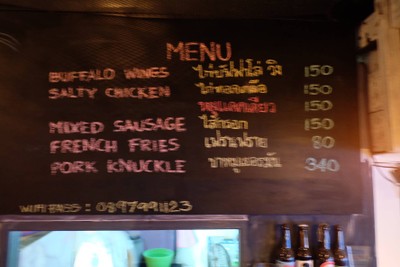 MENU
BUFFALO WINGS ไก่บัฟฟาโล่ วิง 150
SALTY CHICKEN ไก่ทอดเกลือ 150
หมูแดดเดียว 150
MIXED SAUSAGE ไส้กรอก 150
FRENCH FRIES เฟรนฟราย 80
PORK KNUCKLE ขาหมูเยอรมัน 340
WIFI PASS : 0897991123